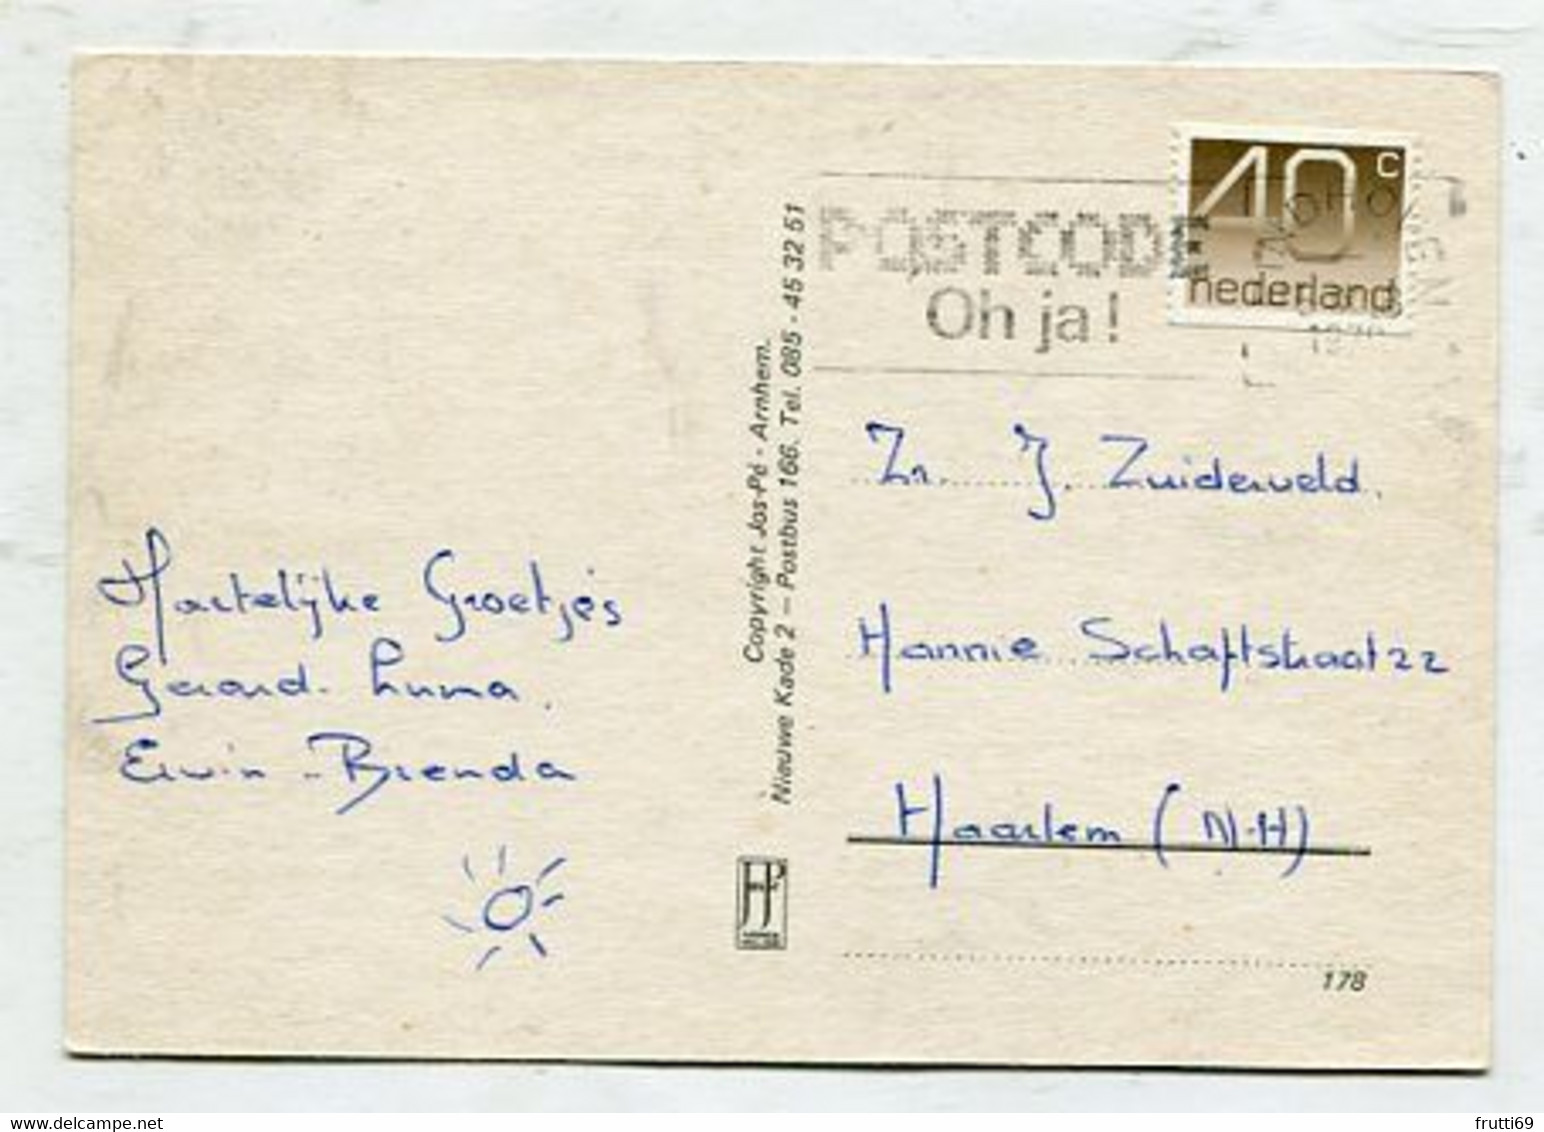 Hartelijke Groetjes
Gerard - Luna,
Erwin - Brenda
Copyright Jos-Pé - Arnhem.
Nieuwe Kade 2 - Postbus 166. Tel. 085 - 45 32 51
POSTCODE
Oh ja!
40 c
nederland
Zr. J. Zuiderveld.
Hannie Schaftstraat 22
Haarlem (N-H)
178
frutti69